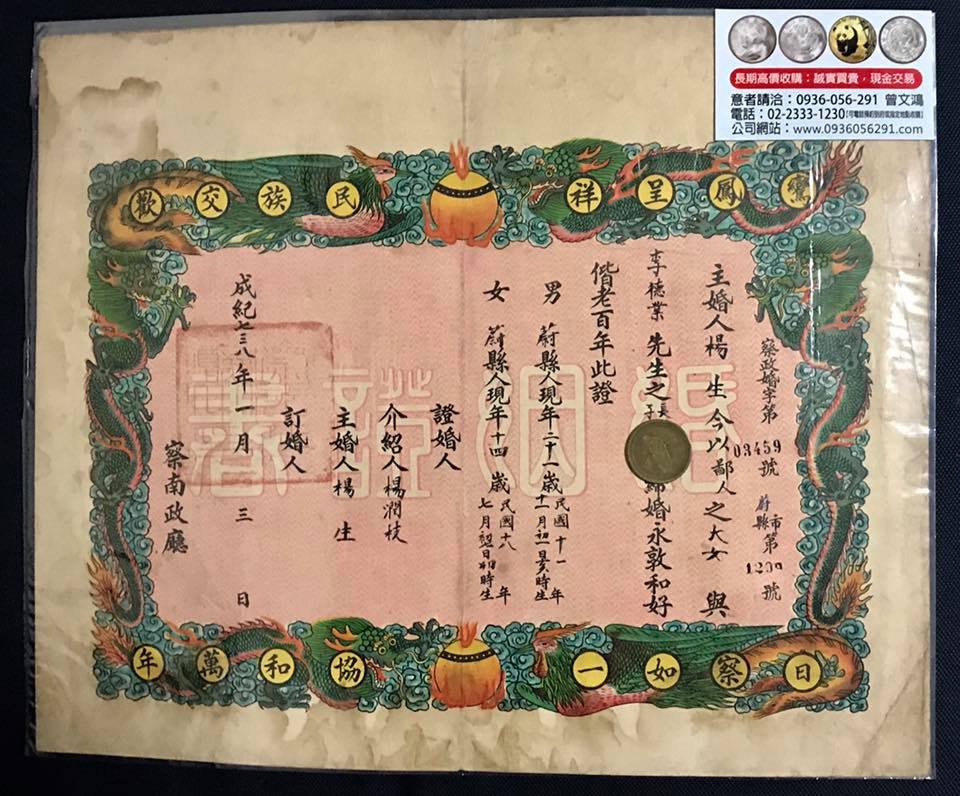 長期高價收購：誠實買賣，現金交易
意者請洽：0936-056-291 曾文鴻
電話：02-2333-1230
公司網站：www.0936056291.com
鸞鳳呈祥
民族交歡
察政婚字第03459號
蔚縣市第1209號
主婚人楊 生今以鄙人之大女 與
李德業先生之長子 締婚永敦和好
偕老百年此證
男 蔚縣人現年二十一歲民國十一年十一月初一日亥時生
女 蔚縣人現年十四歲民國十八年七月初 日 時生
證婚人
介紹人楊潤枝
主婚人楊 生
訂婚人
成紀七三八年一月 三 日
察南政廳
婚 證書
日察如一
協和萬年